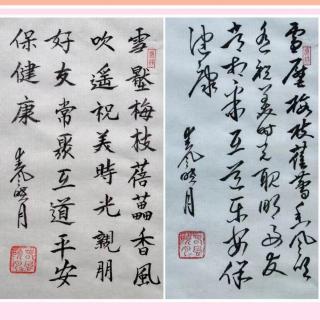 雪壓梅枝蓓蕾香風
吹遥祝美時光親朋
好友常聚互道平安
保健康
月
雪壓梅枝蓓蕾香風吹
遥祝美時光親朋好友
常相聚互道平安保
健康
月